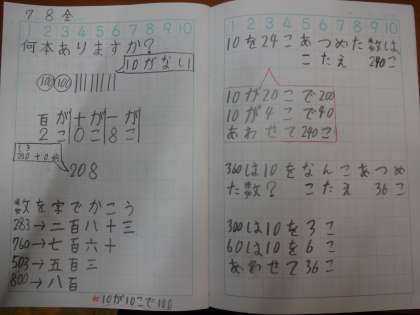 7 8 金
1 2 3 4 5 6 7 8 9 10
何本ありますか?
10がない
100 100
百が 十が 一が
2こ 0こ 8こ
208
数を字でかこう
283→二百八十三
760→七百六十
503→五百三
800→八百
10が10こで100
1 2 3 4 5 6 7 8 9 10
10を24こあつめた数は
こたえ 240こ
10が20こで200
10が4こで40
あわせて240こ
360は10をなんこあつめ
た数? こたえ 36こ
300は10を3こ
60は10を6こ
あわせて36こ